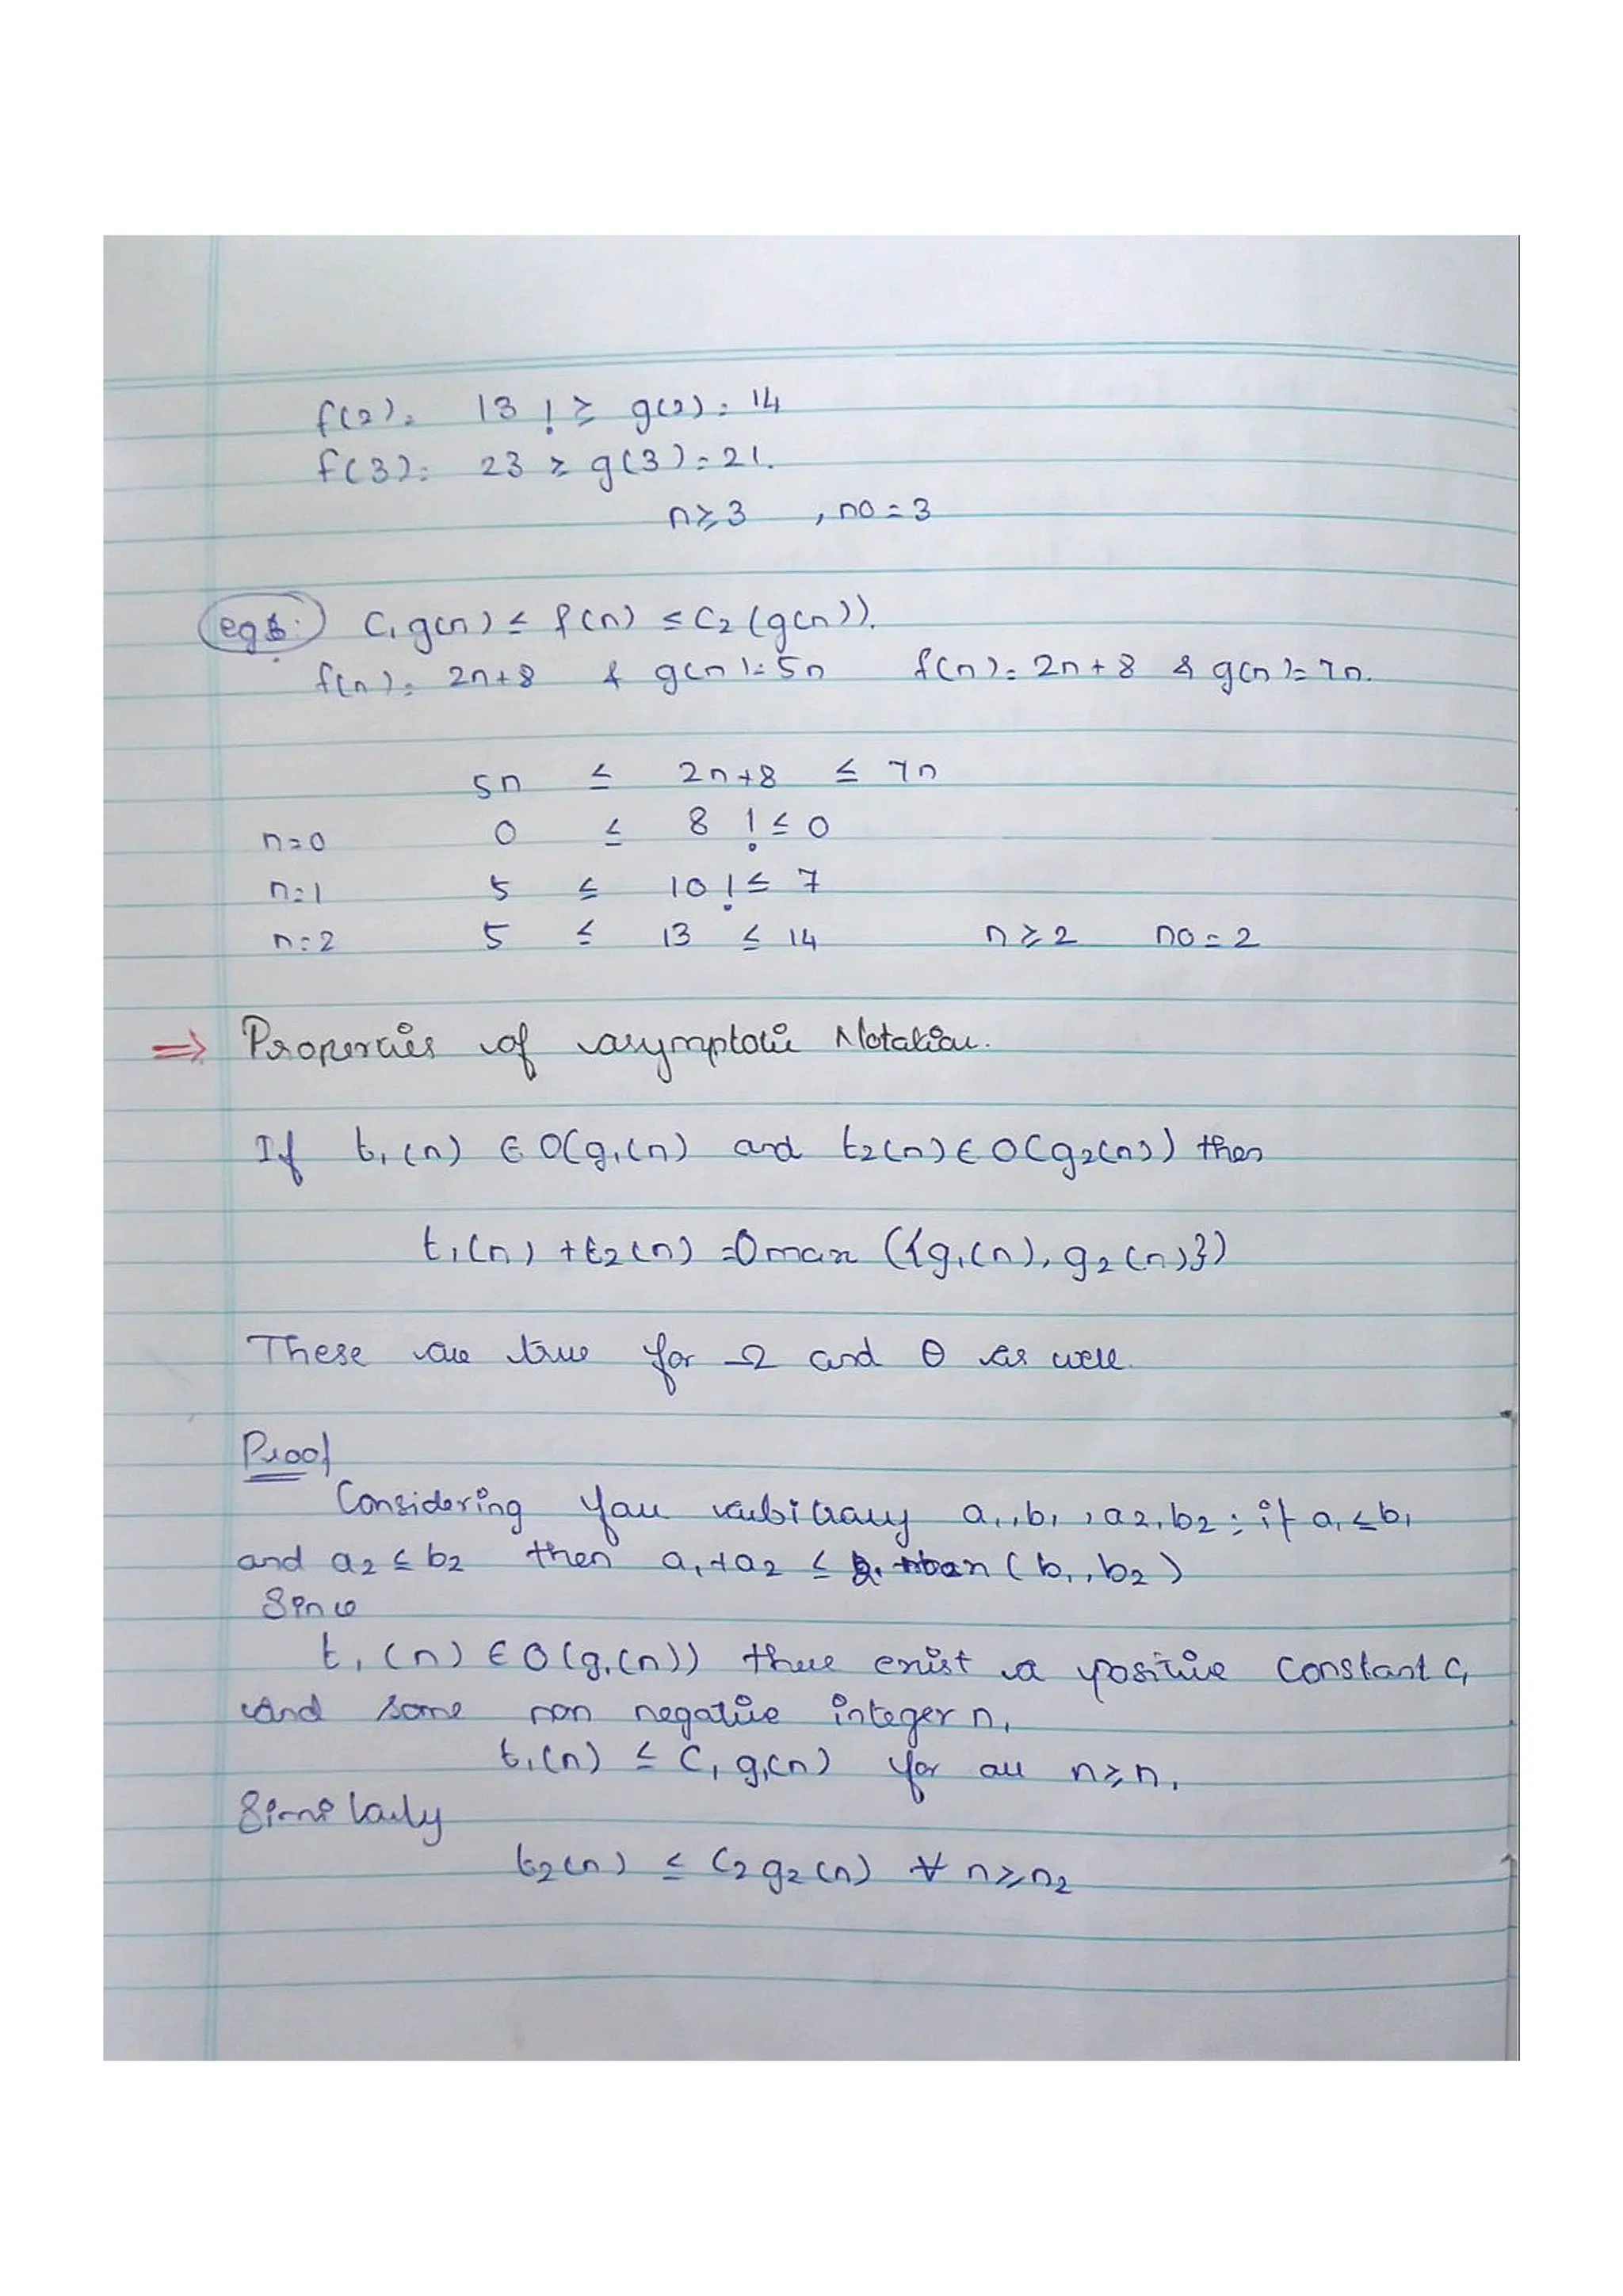 f(2) = 13 !≥ g(2) = 14
f(3) = 23 ≥ g(3) = 21.
n≥3 , n0 = 3
eg: C1 g(n) ≤ f(n) ≤ C2 (g(n)).
f(n) = 2n+8 & g(n) = 5n f(n) = 2n+8 & g(n) = 7n.
5n ≤ 2n+8 ≤ 7n
n=0 0 ≤ 8 !≤ 0
n=1 5 ≤ 10 !≤ 7
n=2 5 ≤ 13 ≤ 14 n≥2 n0 = 2
⇒ Properties of asymptotic Notation.
If t1(n) ∈ O(g1(n) and t2(n) ∈ O(g2(n)) then
t1(n) + t2(n) = O max ({g1(n), g2(n)})
These are true for Ω and θ as well.
Proof
Considering four arbitrary a1, b1, a2, b2 ; if a1 ≤ b1
and a2 ≤ b2 then a1 + a2 ≤ 2. max (b1, b2)
Since
t1(n) ∈ O(g1(n)) there exist a positive constant C1
and some non negative integer n1
t1(n) ≤ C1 g1(n) for all n≥n1
Similarly
t2(n) ≤ C2 g2(n) ∀ n≥n2